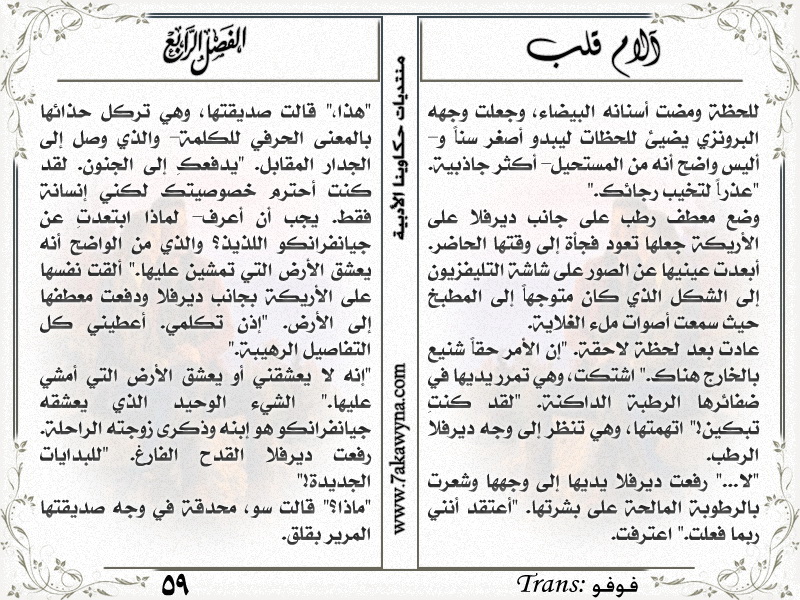 آلام قلب
للحظة ومضت أسنانه البيضاء، وجعلت وجهه
البرونزي يضيئ للحظات ليبدو أصغر سناً و–
أليس واضح أنه من المستحيل– أكثر جاذبية.
"عذراً لتخيب رجائك."
وضع معطف رطب على جانب ديرفلا على
الأريكة جعلها تعود فجأة إلى وقتها الحاضر.
أبعدت عينيها عن الصور على شاشة التليفزيون
إلى الشكل الذي كان متوجهاً إلى المطبخ
حيث سمعت أصوات ملء الغلاية.
عادت بعد لحظة لاحقة. "إن الأمر حقاً شنيع
بالخارج هناك." اشتكت، وهي تمرر يديها في
ضفائرها الرطبة الداكنة. "لقد كنتِ
تبكين!" اتهمتها، وهي تنظر إلى وجه ديرفلا
الرطب.
"لا..." رفعت ديرفلا يديها إلى وجهها وشعرت
بالرطوبة المالحة على بشرتها. "أعتقد أنني
ربما فعلت." اعترفت.
منتديات حكاوينا الأدبية
www.7akawyna.com
الفصل الرابع
"هذا،" قالت صديقتها، وهي تركل حذائها
بالمعنى الحرفي للكلمة– والذي وصل إلى
الجدار المقابل. "يدفعكِ إلى الجنون. لقد
كنت أحترم خصوصيتك لكني إنسانة
فقط. يجب أن أعرف– لماذا ابتعدتِ عن
جيانفرانكو اللذيذ؟ والذي من الواضح أنه
يعشق الأرض التي تمشين عليها." ألقت نفسها
على الأريكة بجانب ديرفلا ودفعت معطفها
إلى الأرض. "إذن تكلمي. أعطيني كل
التفاصيل الرهيبة."
"إنه لا يعشقني أو يعشق الأرض التي أمشي
عليها." الشيء الوحيد الذي يعشقه
جيانفرانكو هو إبنه وذكرى زوجته الراحلة.
رفعت ديرفلا القدح الفارغ. "للبدايات
الجديدة!"
"ماذا؟" قالت سو، محدقة في وجه صديقتها
المرير بقلق.
Trans: فوفو
٥٩